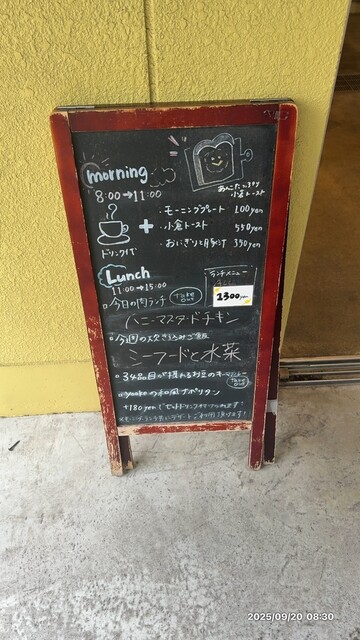 morning
8:00→11:00
あんこたっぷり
小倉トースト
ドリンク代
+
・モーニングプレート 100yen
・小倉トースト 550yen
・おにぎりと豚汁 350yen
Lunch
11:00→15:00
ランチメニュー
1300yen
○今日の肉ランチ Take Out
ハニーマスタードチキン
○今週の炊き込みご飯
シーフードと水菜
○34品目が摂れるお豆のキーマカレー
Take Out
の和風ナポリタン
+180yenで
2025/09/20 08:30